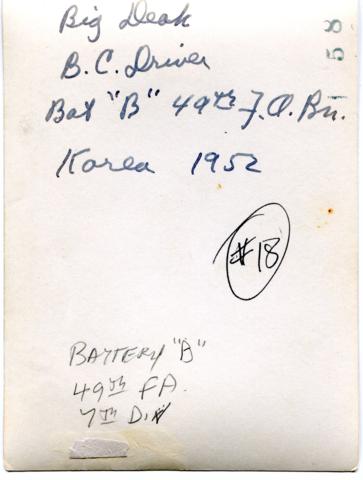 Big Deak
B.C. Driver
58
Bat "B" 49th F.A. Bn.
Korea 1952
#18
BATTERY "B"
49th FA.
7th Div